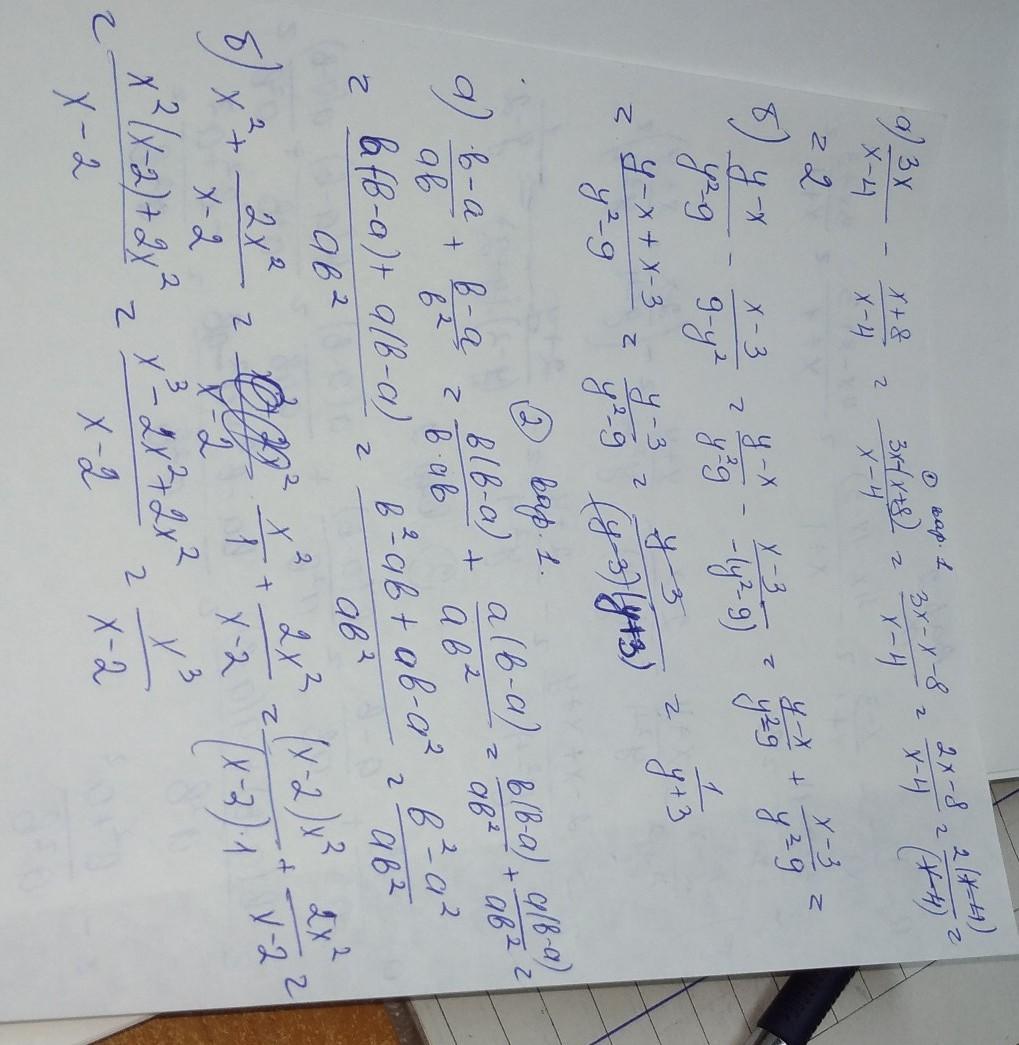 ① вар. 1
а) 3x/(x-4) - (x+8)/(x-4) = (3x-(x+8))/(x-4) = (3x-x-8)/(x-4) = (2x-8)/(x-4) = 2(x-4)/(x-4) =
= 2
б) (y-x)/(y²-9) - (x-3)/(9-y²) = (y-x)/(y²-9) - (x-3)/(-(y²-9)) = (y-x)/(y²-9) + (x-3)/(y²-9) =
= (y-x+x-3)/(y²-9) = (y-3)/(y²-9) = (y-3)/((y-3)(y+3)) = 1/(y+3)
② вар. 1.
а) (b-a)/(ab) + (b-a)/b² = b(b-a)/(b·ab) + a(b-a)/(ab²) = b(b-a)/(ab²) + a(b-a)/(ab²) =
= (b(b-a)+a(b-a))/(ab²) = (b²-ab+ab-a²)/(ab²) = (b²-a²)/(ab²)
б) x² + 2x²/(x-2) = x²/1 + 2x²/(x-2) = (x-2)x²/((x-2)·1) + 2x²/(x-2) =
= (x²(x-2)+2x²)/(x-2) = (x³-2x²+2x²)/(x-2) = x³/(x-2)